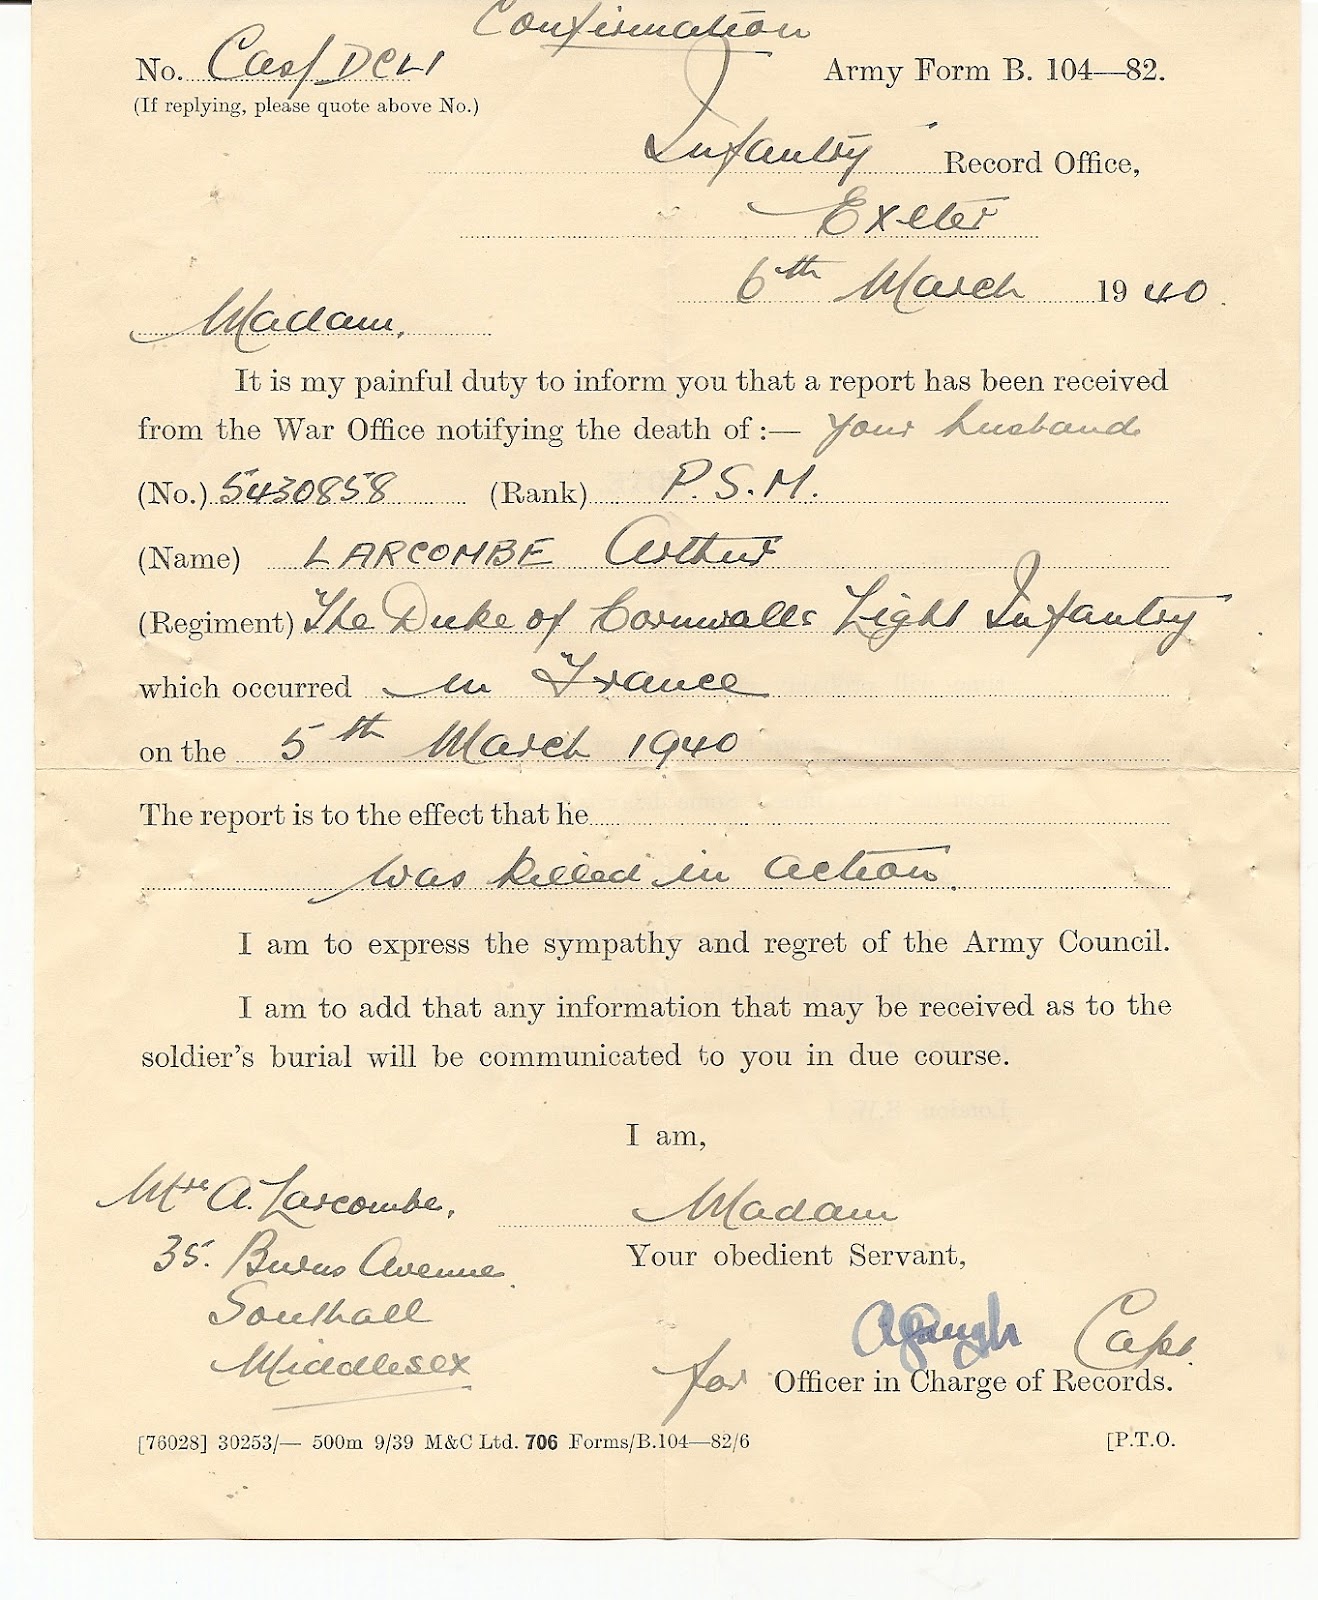 Confirmation
No. Cas/DCLI
Army Form B. 104—82.
(If replying, please quote above No.)
Infantry Record Office,
Exeter
6th March 1940.
Madam,
It is my painful duty to inform you that a report has been received
from the War Office notifying the death of :— your husband
(No.) 5430858 (Rank) P.S.M.
(Name) LARCOMBE Arthur
(Regiment) The Duke of Cornwalls Light Infantry
which occurred in France
on the 5th March 1940
The report is to the effect that he
was killed in action.
I am to express the sympathy and regret of the Army Council.
I am to add that any information that may be received as to the
soldier's burial will be communicated to you in due course.
I am,
Mrs A. Larcombe,
35. Burns Avenue
Southall
Middlesex
Madam
Your obedient Servant,
Capt.
for Officer in Charge of Records.
[76028] 30253/— 500m 9/39 M&C Ltd. 706 Forms/B.104—82/6
[P.T.O.